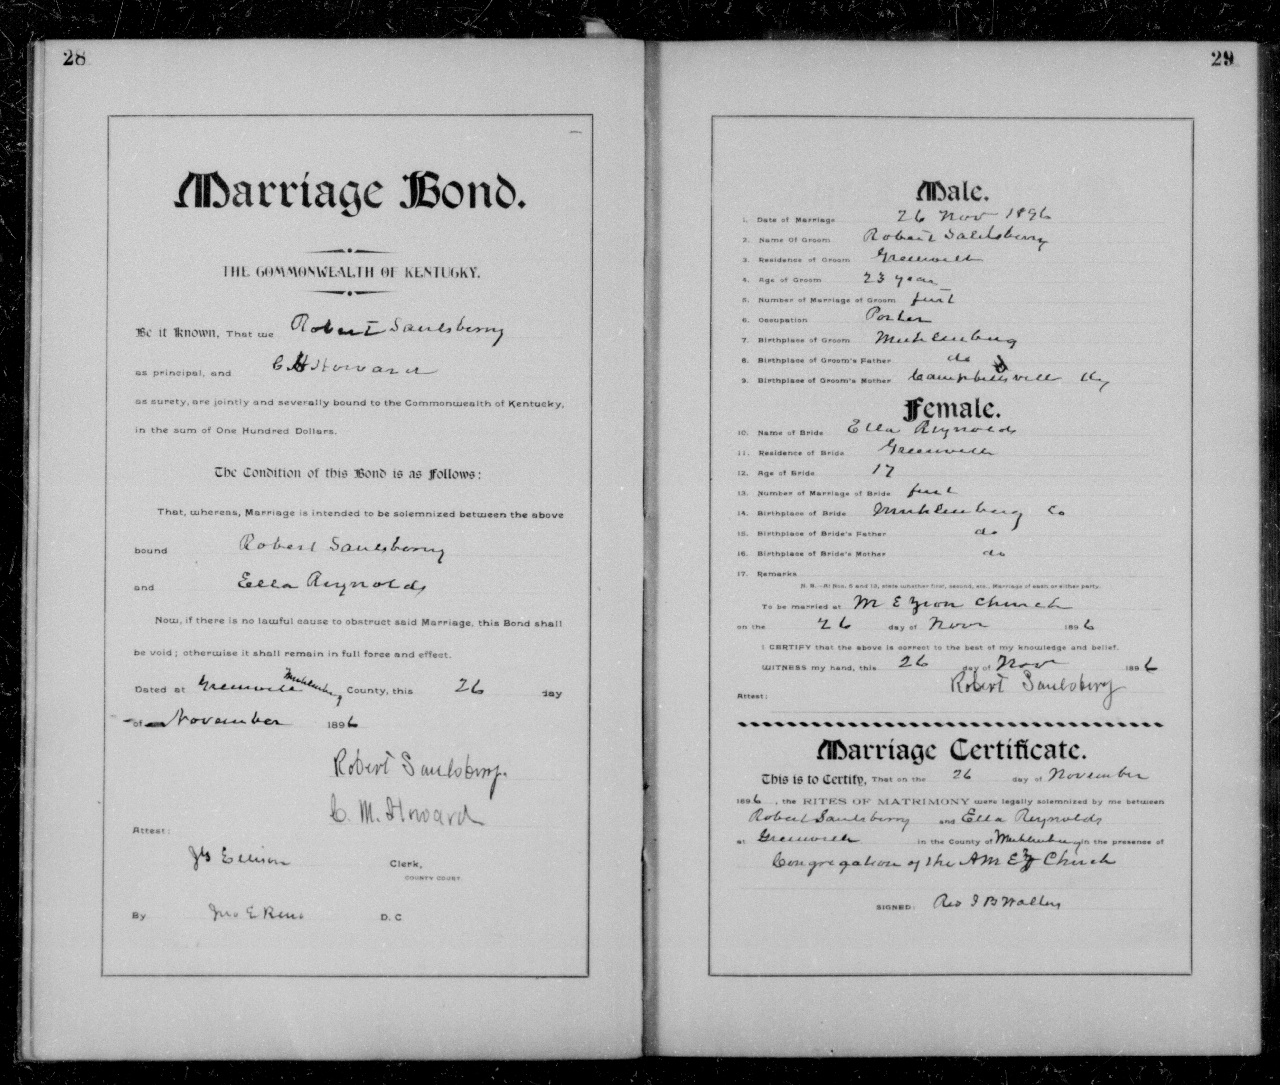 28
Marriage Bond.
THE COMMONWEALTH OF KENTUCKY.
Be it Known, That we Robert Saulsberry
as principal, and C H Howard
as surety, are jointly and severally bound to the Commonwealth of Kentucky,
in the sum of One Hundred Dollars.
The Condition of this Bond is as Follows:
That, whereas, Marriage is intended to be solemnized between the above
bound Robert Saulsberry
and Ella Reynolds
Now, if there is no lawful cause to obstruct said Marriage, this Bond shall
be void; otherwise it shall remain in full force and effect.
Dated at Greenville Muhlenburg County, this 26 day
of November 1896
Robert Saulsberry.
C. M. Howard
Attest:
Ellison Clerk,
COUNTY COURT
By Jno E Reno D. C.
29
Male.
1. Date of Marriage 26 Nov 1896
2. Name Of Groom Robert Saulsberry
3. Residence of Groom Greenville
4. Age of Groom 23 year
5. Number of Marriage of Groom first
6. Occupation Porter
7. Birthplace of Groom Muhlenburg
8. Birthplace of Groom's Father do
9. Birthplace of Groom's Mother Campbellsville Ky
Female.
10. Name of Bride Ella Reynolds
11. Residence of Bride Greenville
12. Age of Bride 17
13. Number of Marriage of Bride first
14. Birthplace of Bride Muhlenburg Co
15. Birthplace of Bride's Father do
16. Birthplace of Bride's Mother do
17. Remarks
N. B.—At Nos. 5 and 13, state whether first, second, etc., Marriage of each or either party.
To be married at M E Zion Church
on the 26 day of Nov 1896
I CERTIFY that the above is correct to the best of my knowledge and belief.
WITNESS my hand, this 26 day of Nov 1896
Robert Saulsberry
Attest:
Marriage Certificate.
This is to Certify, That on the 26 day of November
1896, the RITES OF MATRIMONY were legally solemnized by me between
Robert Saulsberry and Ella Reynolds
at Greenville in the County of Muhlenburg in the presence of
Congregation of the A M E Z Church
SIGNED: Rev J B Walker